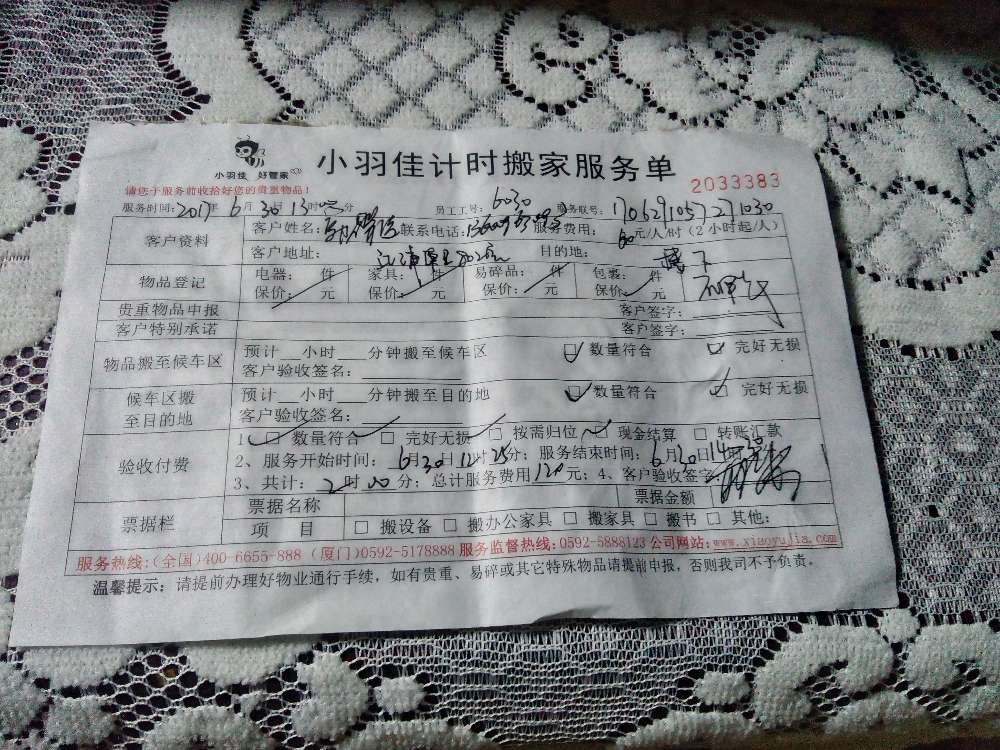 小羽佳 好管家
小羽佳计时搬家服务单
2033383
请您于服务前收拾好您的贵重物品!
服务时间:2017年6月30日13时00分 员工工号:6030 服务联号:1706291057271030
客户资料
客户姓名: 联系电话: 服务费用:60元/人/时(2小时起/人)
客户地址: 目的地:
物品登记
电器: 件 家具: 件 易碎品: 件 包裹: 件
保价: 元 保价: 元 保价: 元 保价: 元
贵重物品申报 客户签字:
客户特别承诺 客户签字:
物品搬至候车区
预计__小时___分钟搬至候车区 □数量符合 □完好无损
客户验收签名:
候车区搬至目的地
预计__小时___分钟搬至目的地 □数量符合 □完好无损
客户验收签名:
验收付费
1、□数量符合 □完好无损 □按需归位 □现金结算 □转账汇款
2、服务开始时间:6月30日12时25分;服务结束时间:6月30日14 30
3、共计:2时00分;总计服务费用120元;4、客户验收签字
票据栏
票据名称 票据金额
项 目 □搬设备 □搬办公家具 □搬家具 □搬书 □其他:
服务热线:(全国)400-6655-888 (厦门)0592-5178888 服务监督热线:0592-5888123 公司网站:www.xiaoyujia.com
温馨提示:请提前办理好物业通行手续,如有贵重、易碎或其它特殊物品请提前申报,否则我司不予负责。